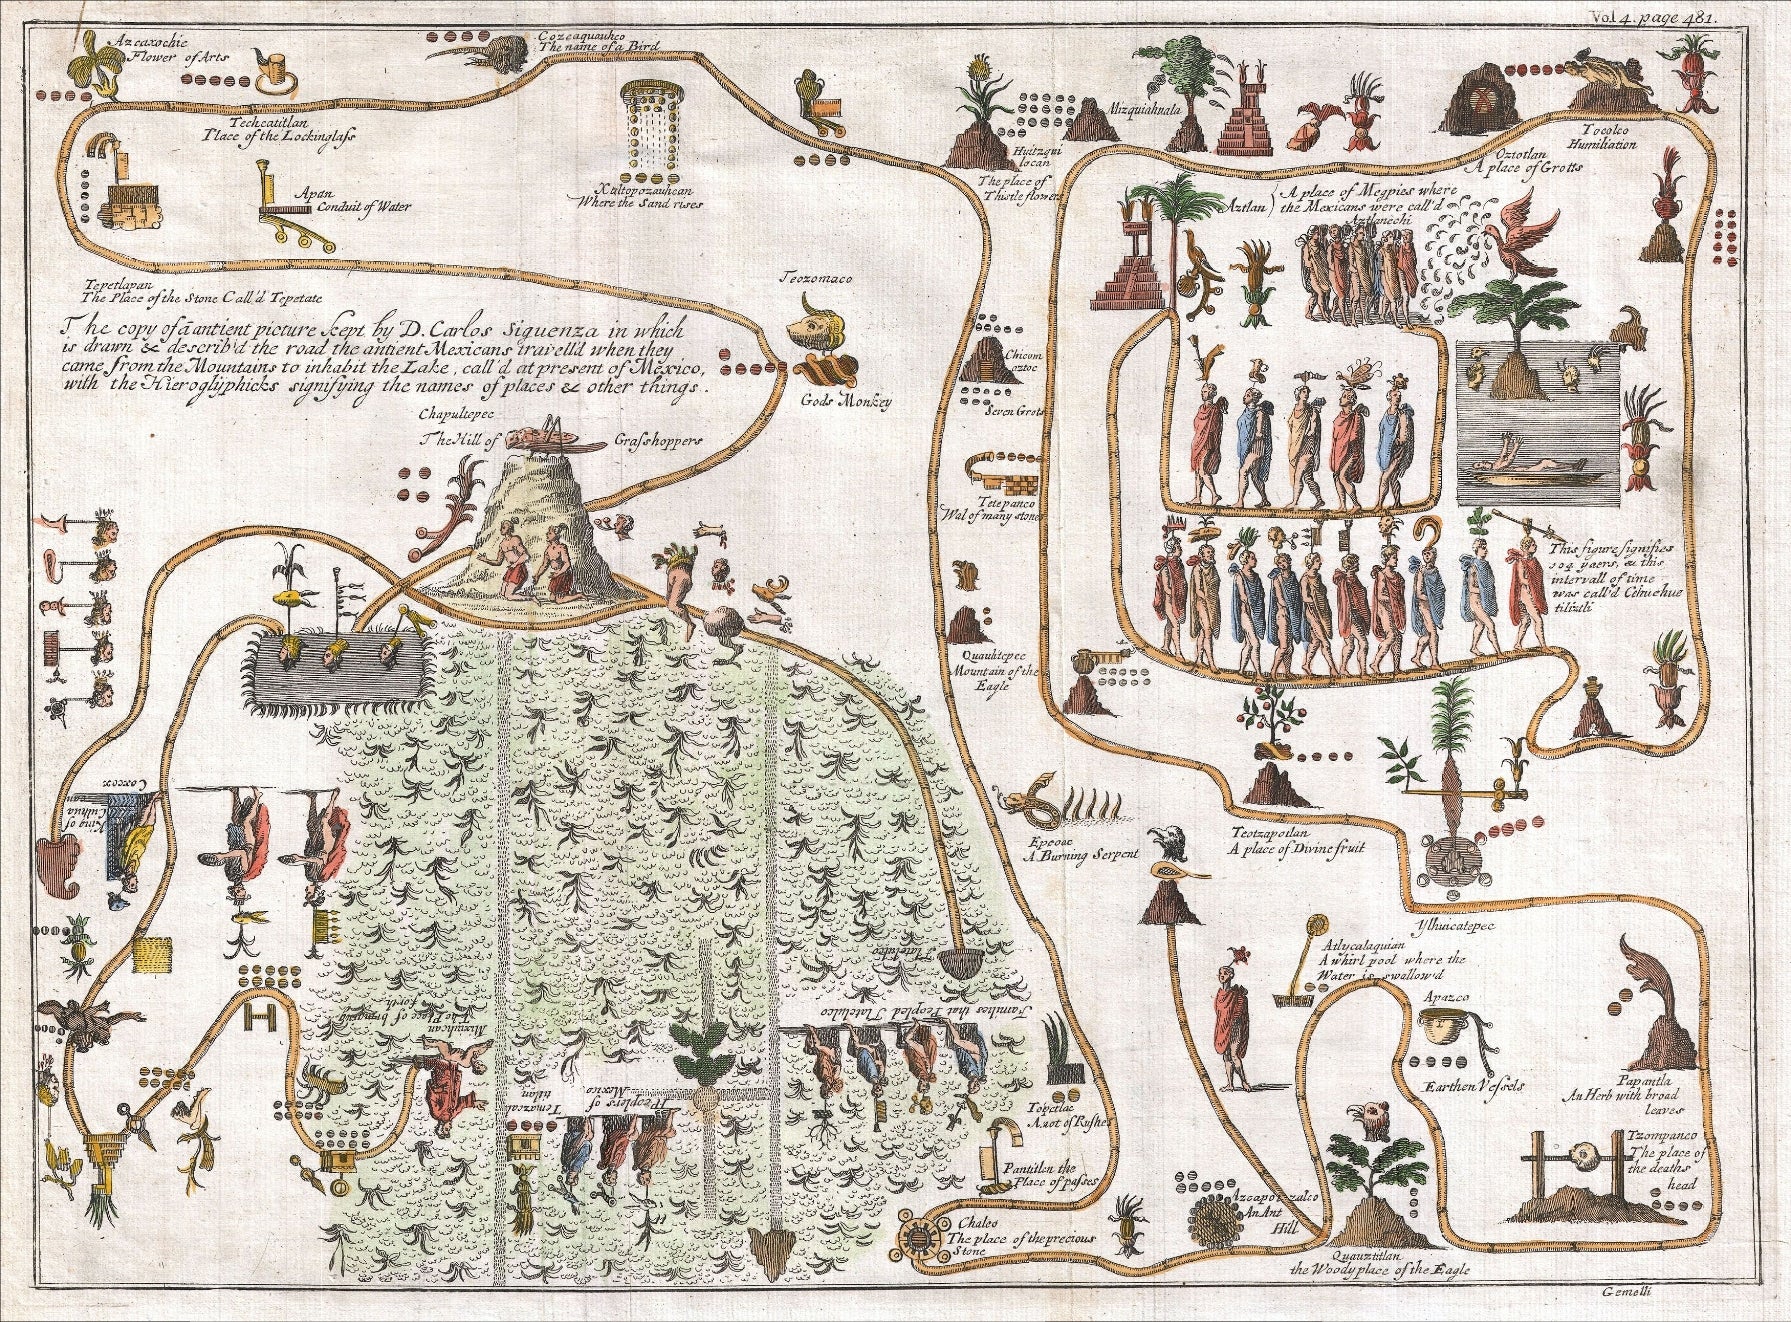 Vol 4. page 481.
Azcaxochic
Flower of Arts
Cozcaquauhco
The name of a Bird
Techcatitlan
Place of the Lockinglass
Apan
Conduit of Water
Xaltopozauhcan
Where the Sand rises
Huitzqui
locan
The place of
Thistle flowers
Mizquiahuala
Oztotlan
A place of Grotts
Tocolco
Humiliation
Aztlan
A place of Megpies where
the Mexicans were call'd
Aztlanechi
Tepetlapan
The Place of the Stone Call'd Tepetate
The copy of ā antient picture kept by D. Carlos Siguenza in which
is drawn & describ'd the road the antient Mexicans travell'd when they
came from the Mountains to inhabit the Lake, call'd at present of Mexico,
with the Hieroglyphicks signifying the names of places & other things.
Teozomaco
Gods Monkey
Chapultepec
The Hill of Grasshoppers
Chicom
oztoc
Seven Grots
Tetepanco
Wal of many stones
Quauhtepec
Mountain of the
Eagle
This figure signifies
104 yaers, & this
intervall of time
was call'd Cehuehue
tiliztli
Epcoac
A Burning Serpent
Teotzapotlan
A place of Divine fruit
Coxcox
King of
Culhua
can
Ylhuicatepec
Atlycalaquian
A whirl pool where the
Water is swallow'd
Apazco
Earthen Vessels
Papantla
An Herb with broad
leaves
Tlatelulco
Mixiuhcan
The Place of bringing
forth
Families that Peopled Tlatelulco
Peoplers of
Mexico
Tenazcal
titlan
Topetlac
A wot of Rushes
Pantitlan the
Place of passes
Chalco
The place of the precious
Stone
Azcapotzalco
An Ant
Hill
Quauztitlan
the Woody place of the Eagle
Tzompanco
The place of
the deaths
head
Gemelli